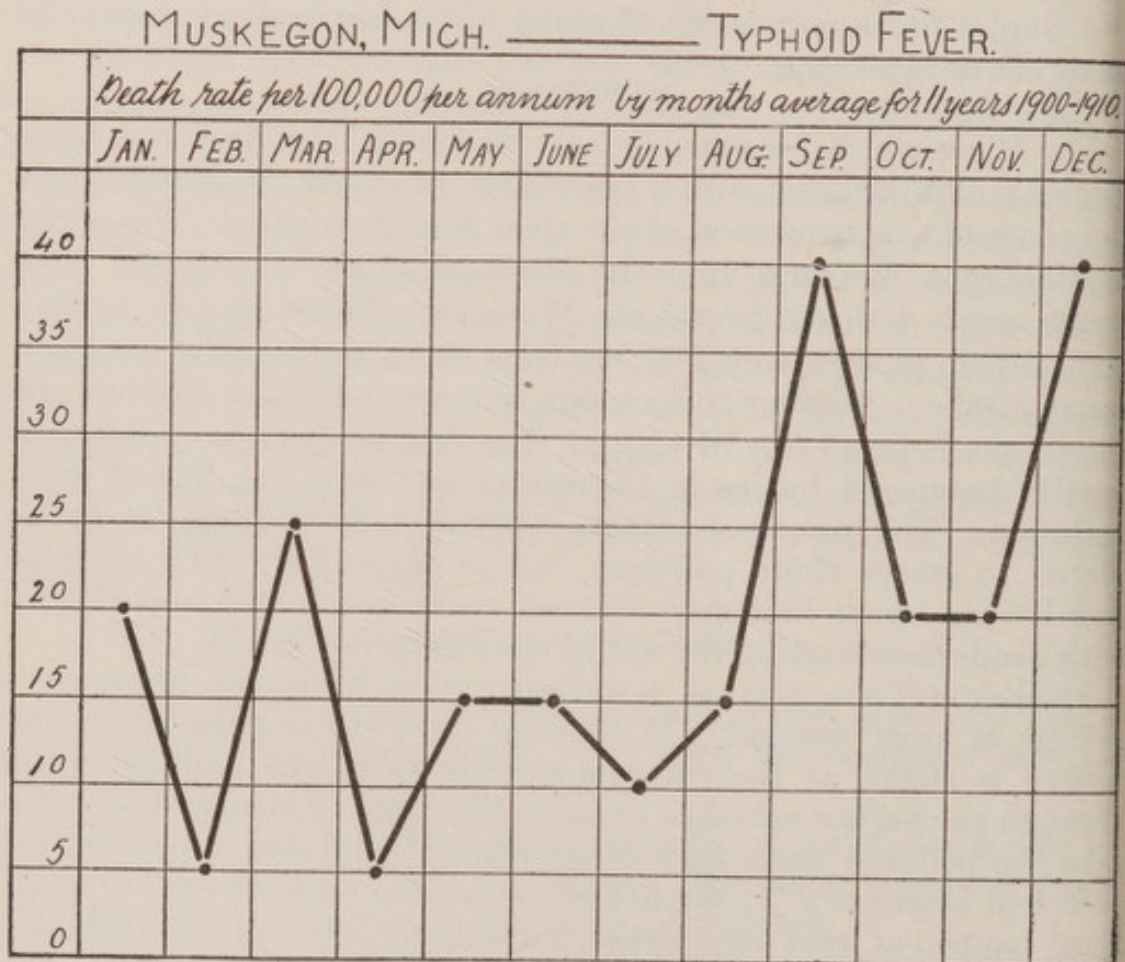 MUSKEGON, MICH. ——— TYPHOID FEVER.
Death rate per 100,000 per annum by months average for 11 years 1900-1910.
JAN. FEB. MAR. APR. MAY JUNE JULY AUG. SEP. OCT. NOV. DEC.
40
35
30
25
20
15
10
5
0